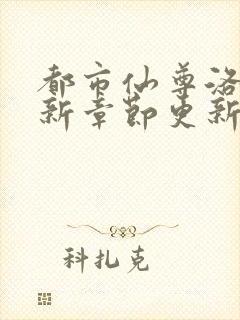 都市仙尊洛
新章节更新
科扎克